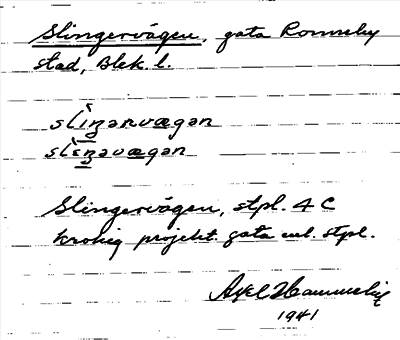 Slingervägen, gata Ronneby
stad, Blek. l.
slìŋərvægən
slìŋəvægən
Slingervägen, stpl. 4 C
krokig projekt. gata enl. stpl.
Axel
1941